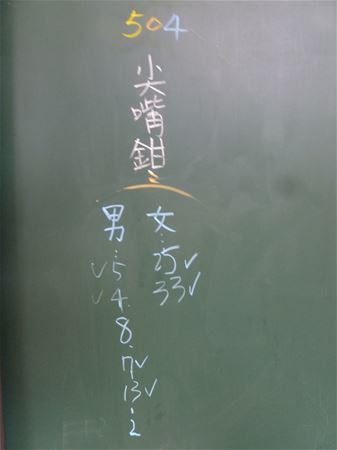 504
尖嘴鉗
男：
✓5
✓4.
8.
7✓
13✓
2
女：
25✓
33✓